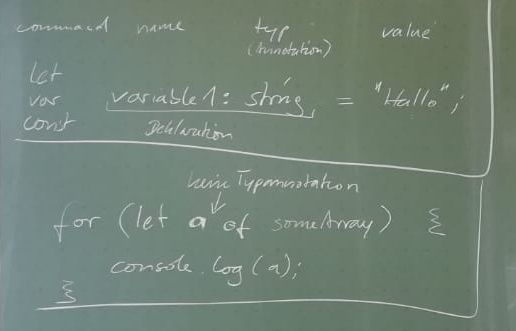 command name typ value
(Annotation)
let
var variable1: string = "Hallo";
const Deklaration
keine Typannotation
for (let a of someArray) {
console.log(a);
}